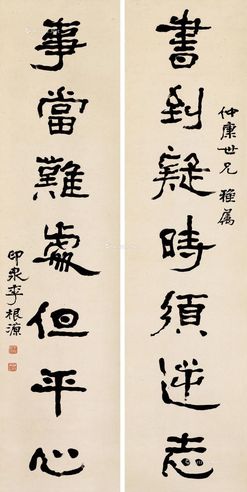 書到疑時須逆志
仲康世兄雅屬
事當難處但平心
印泉李根源